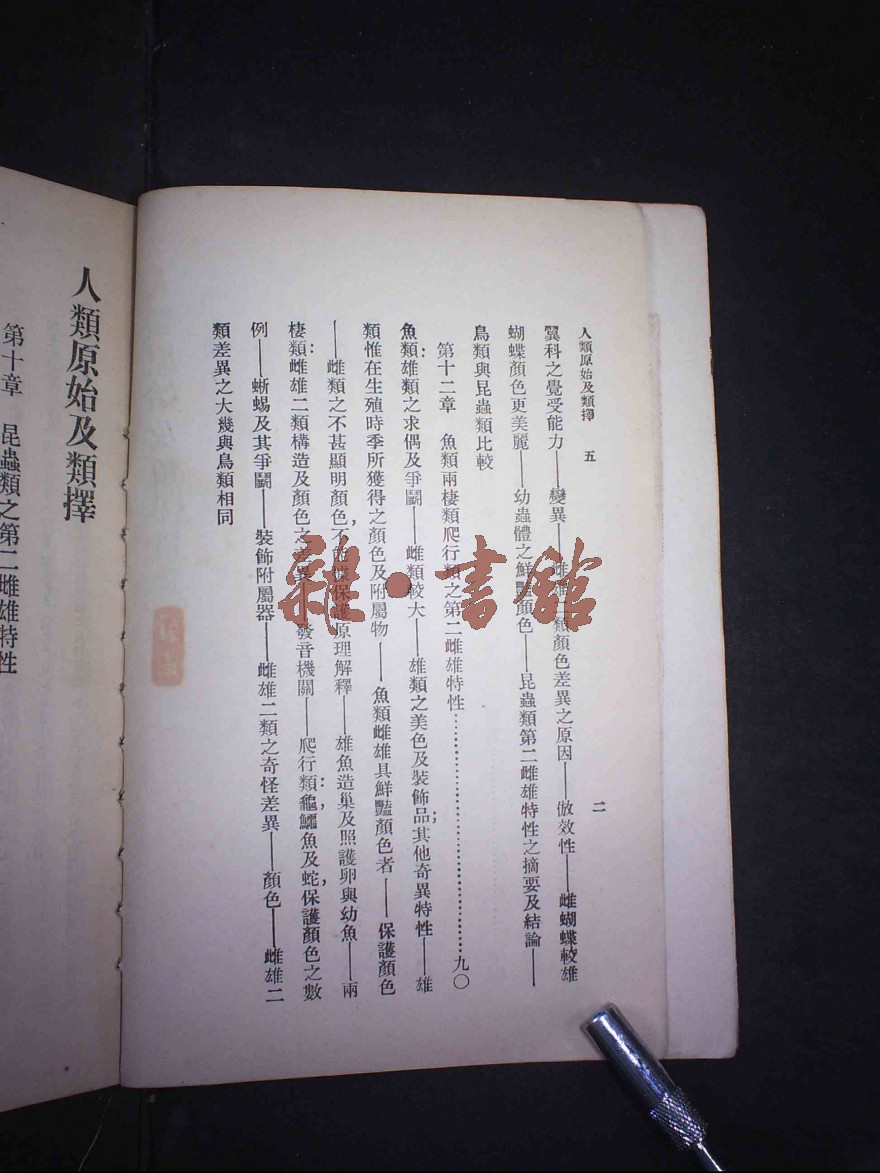 人類原始及類擇　五　二
翼科之覺受能力——變異——雌雄二類顏色差異之原因——倣效性——雌蝴蝶較雄
蝴蝶顏色更美麗——幼蟲體之鮮豔顏色——昆蟲類第二雌雄特性之摘要及結論——
鳥類與昆蟲類比較
第十二章　魚類兩棲類爬行類之第二雌雄特性……九〇
魚類：雄類之求偶及爭鬭——雌類較大——雄類之美色及裝飾品；其他奇異特性——雄
類惟在生殖時季所獲得之顏色及附屬物——魚類雌雄具鮮豔顏色者——保護顏色
——雌類之不甚顯明顏色，不能據保護原理解釋——雄魚造巢及照護卵與幼魚——兩
棲類：雌雄二類構造及顏色之差異——發音機關——爬行類：龜，鱷魚及蛇，保護顏色之數
例——蜥蜴及其爭鬭——裝飾附屬器——雌雄二類之奇怪差異——顏色——雌雄二
類差異之大幾與鳥類相同
人類原始及類擇
第十章　昆蟲類之第二雌雄特性
雜·書館